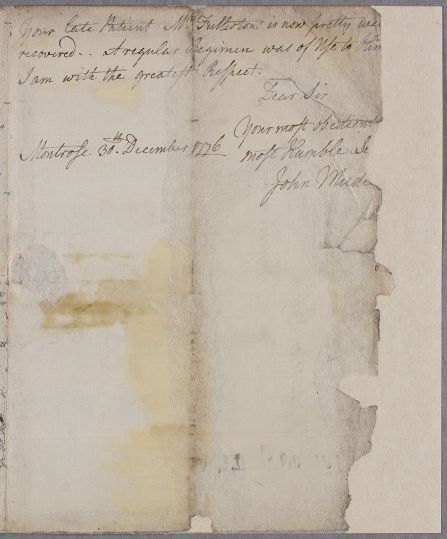 Your late Patient Mr. Fullerton is now pretty wee
recovered.. A regular Regimen was of Use to Him
I am with the greatest Respect.
Dear Sir
Your most obedient
Montrose 30th. December 1776 most Humble Se
John Mude